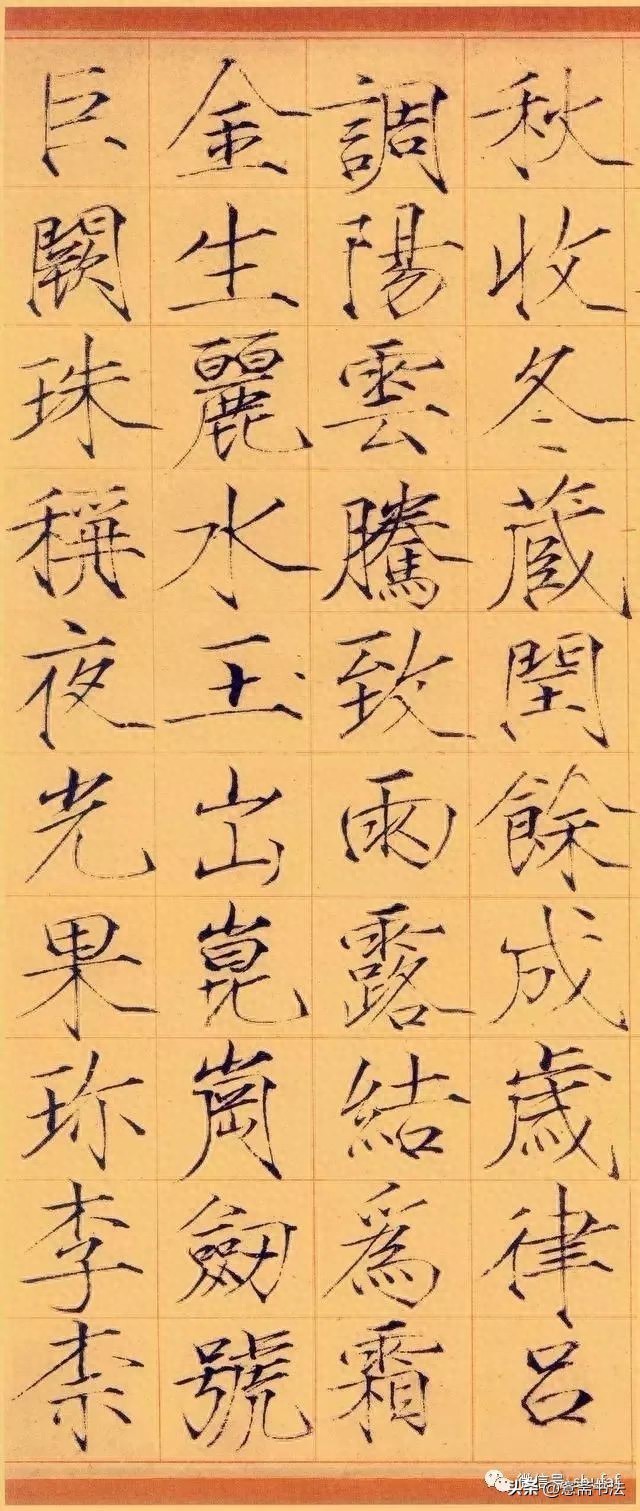 秋收冬蔵閏餘成歳律吕
調陽雲騰致雨露結爲霜
金生麗水玉出崑崗劔號
巨闕珠稱夜光果珎李柰
微信号: shufaf
头条@悫斋书法